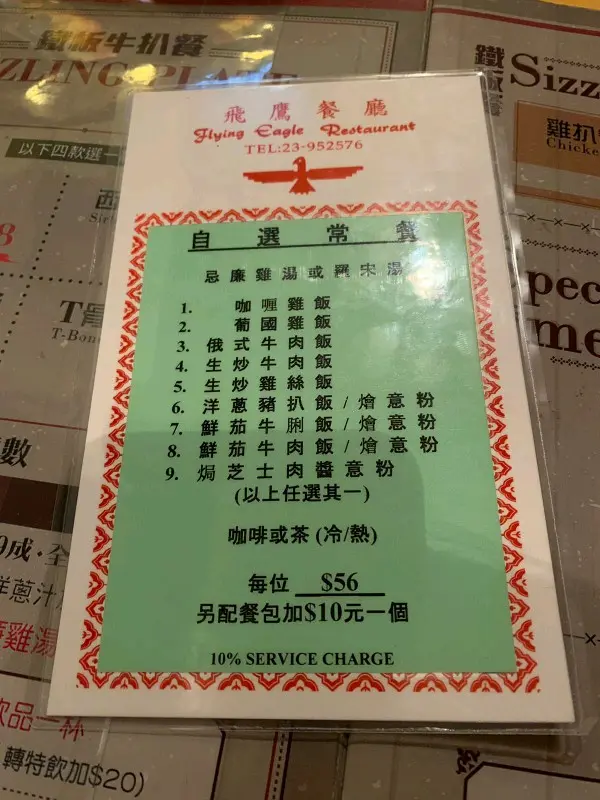 鐵板牛扒餐
ZZLING PLATE
以下四款選一
西
Sir
8
T骨
T-Bon
數
成·全
洋蔥汁
雞湯
飲品一杯
轉特飲加$20)
飛鷹餐廳
Flying Eagle Restaurant
TEL:23-952576
自選常餐
忌廉雞湯或羅宋湯
1. 咖喱雞飯
2. 葡國雞飯
3. 俄式牛肉飯
4. 生炒牛肉飯
5. 生炒雞絲飯
6. 洋蔥豬扒飯/燴意粉
7. 鮮茄牛脷飯/燴意粉
8. 鮮茄牛肉飯/燴意粉
9. 焗芝士肉醬意粉
(以上任選其一)
咖啡或茶(冷/熱)
每位 $56
另配餐包加$10元一個
10% SERVICE CHARGE
鐵板餐
Sizz
雞扒
Chicke
pec
me